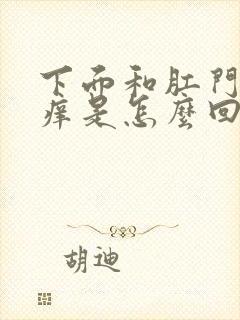 下而和肛門
痒是怎麼回
胡迪